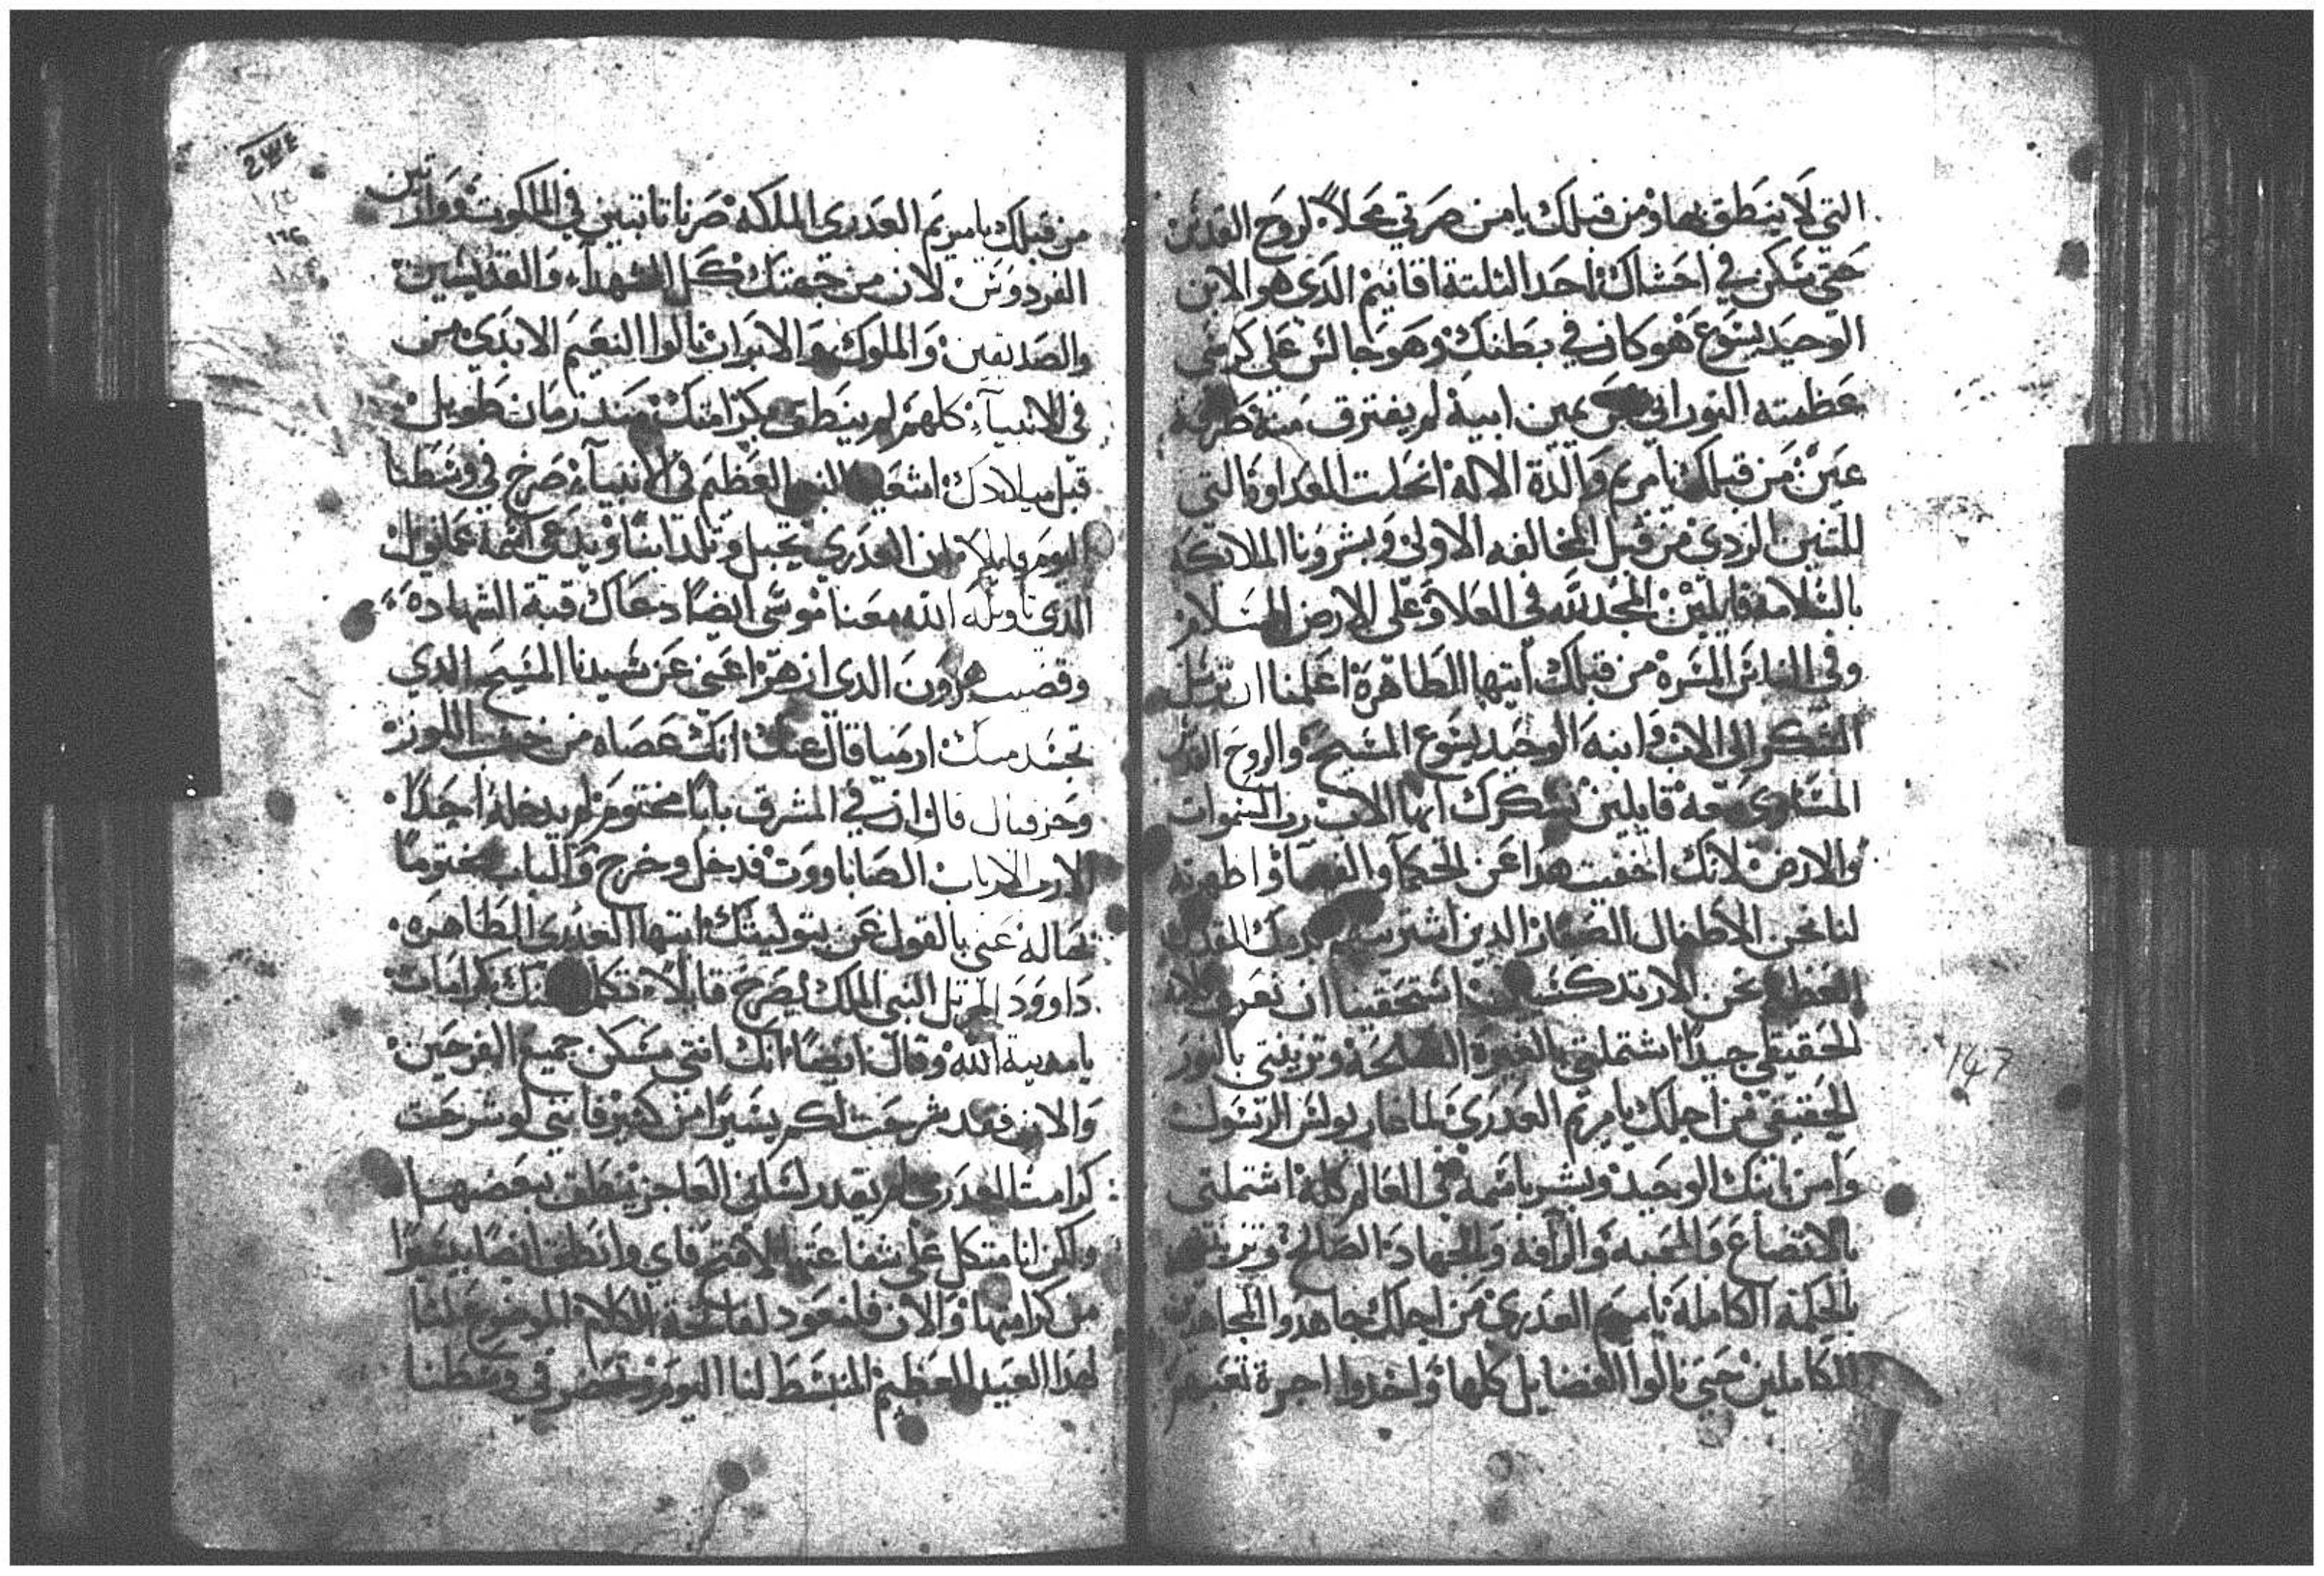 التي لا ينطق بها ومن قبلك يا من صرتي محلاً لروح القدس
حتي سكن في احشاك احد الثلتة اقانيم الدي هو الابن
الوحيد يسوع هو كان في بطنك وهو جالس علي كرسي
عظمته النوراني عن يمين ابيه لم يفترق منه طرفة
عين من قبلك يا مريم والدة الاله انحلت العداوة التي
للتنين الردي من قبل المخالفه الاولي وبشرونا الملايكة
بالسلامه قايلين المجد لله في العلا وعلي الارض السلام
وفي الناس المسرة من قبلك ايتها الطاهرة اعلمنا ان نرسل
الشكر الي الاب وابنه الوحيد يسوع المسيح والروح القدس
المساوي معه قايلين نشكرك ايها الاب رب السموات
والارض لانك اخفيت هدا عن الحكما والفهما واظهرته
لنا نحن الاطفال الصغار الدين اشتريتهم بدمك المقدس
نحن الارتدكسيين استحقينا ان نعرف
الحقيقي جيداً اشتملتي بالغيرة الصالحة وتزينتي بالنور
الحقيقي من اجلك يا مريم العدري لما غار بولس الرسول
وامن بابنك الوحيد وبشر باسمه في العالم كله اشتملتي
بالاتضاع والمحبه والرافه والجهاد الصالح وتزينتي
بالحكمة الكاملة يا مريم العدري من اجلك جاهدوا المجاهدين
الكاملين حتي نالوا الفضايل كلها واخدوا اجرة تعبهم
147
من قبلك يا مريم العدري الملكه صرنا تابتين في الملكوت ووارتين
الفردوس لان من جهتك كل الشهدآء والقديسين
والصديقين والملوك والابرار نالوا النعيم الابدي من
في الانبيآء كلهم لم ينطق بكرامتك مند زمان طويل
قبل ميلادك اشعيا النبي العظيم في الانبيآء صرخ في وسطنا
اليوم قايلا ان العدري تحبل وتلد ابناً ويدعي اسمه عمانويل
الدي تاويله الله معنا موسي ايضاً دعاك قبة الشهادة
وقضيب هرون الدي ازهر اعني عن سيدنا المسيح الدي
تجسد منك ارميا قال عنك انك عصاه من خشب اللوز
وحزقيال قال ان في المشرق باباً مختوم لم يدخله احداً
الا رب الارباب الصاباووت فدخل وخرج والباب مختوماً
بحاله عني بالقول عن بتوليتك ايتها العدري الطاهره
داوود المرتل النبي الملك يصرخ قايلا تكلم عنك بكرامات
يا مدينة الله وقال ايضاً انك انتي مسكن جميع الفرحين
والان فقد شرحت لكم يسيراً من كثير فانني لو شرحت
كرامت العدري لم يقدر لساني العاجز ينطق ببعضها
ولكن انا متكل علي شفاعتها لافتح فاي وانطق ايضاً يسيراً
من كرامتها والان فلنعود لفاتحة الكلام الموضوع لنا
لهدا العيد العظيم المنبسط لنا اليوم ونحضر في وسطنا